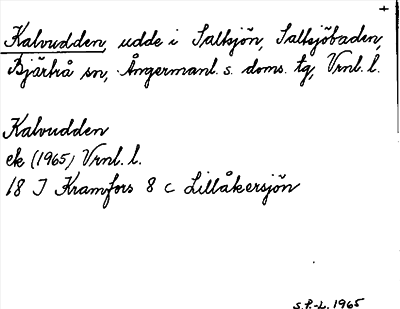 +
Kalvudden, udde i Saltsjön, Saltsjöbaden,
Bjärtrå sn, Ångermanl. s. doms. tg, Vrnl. l.
Kalvudden
ek (1965) Vrnl. l.
18 J Kramfors 8 c Lillåkersjön
S.P.-L. 1965